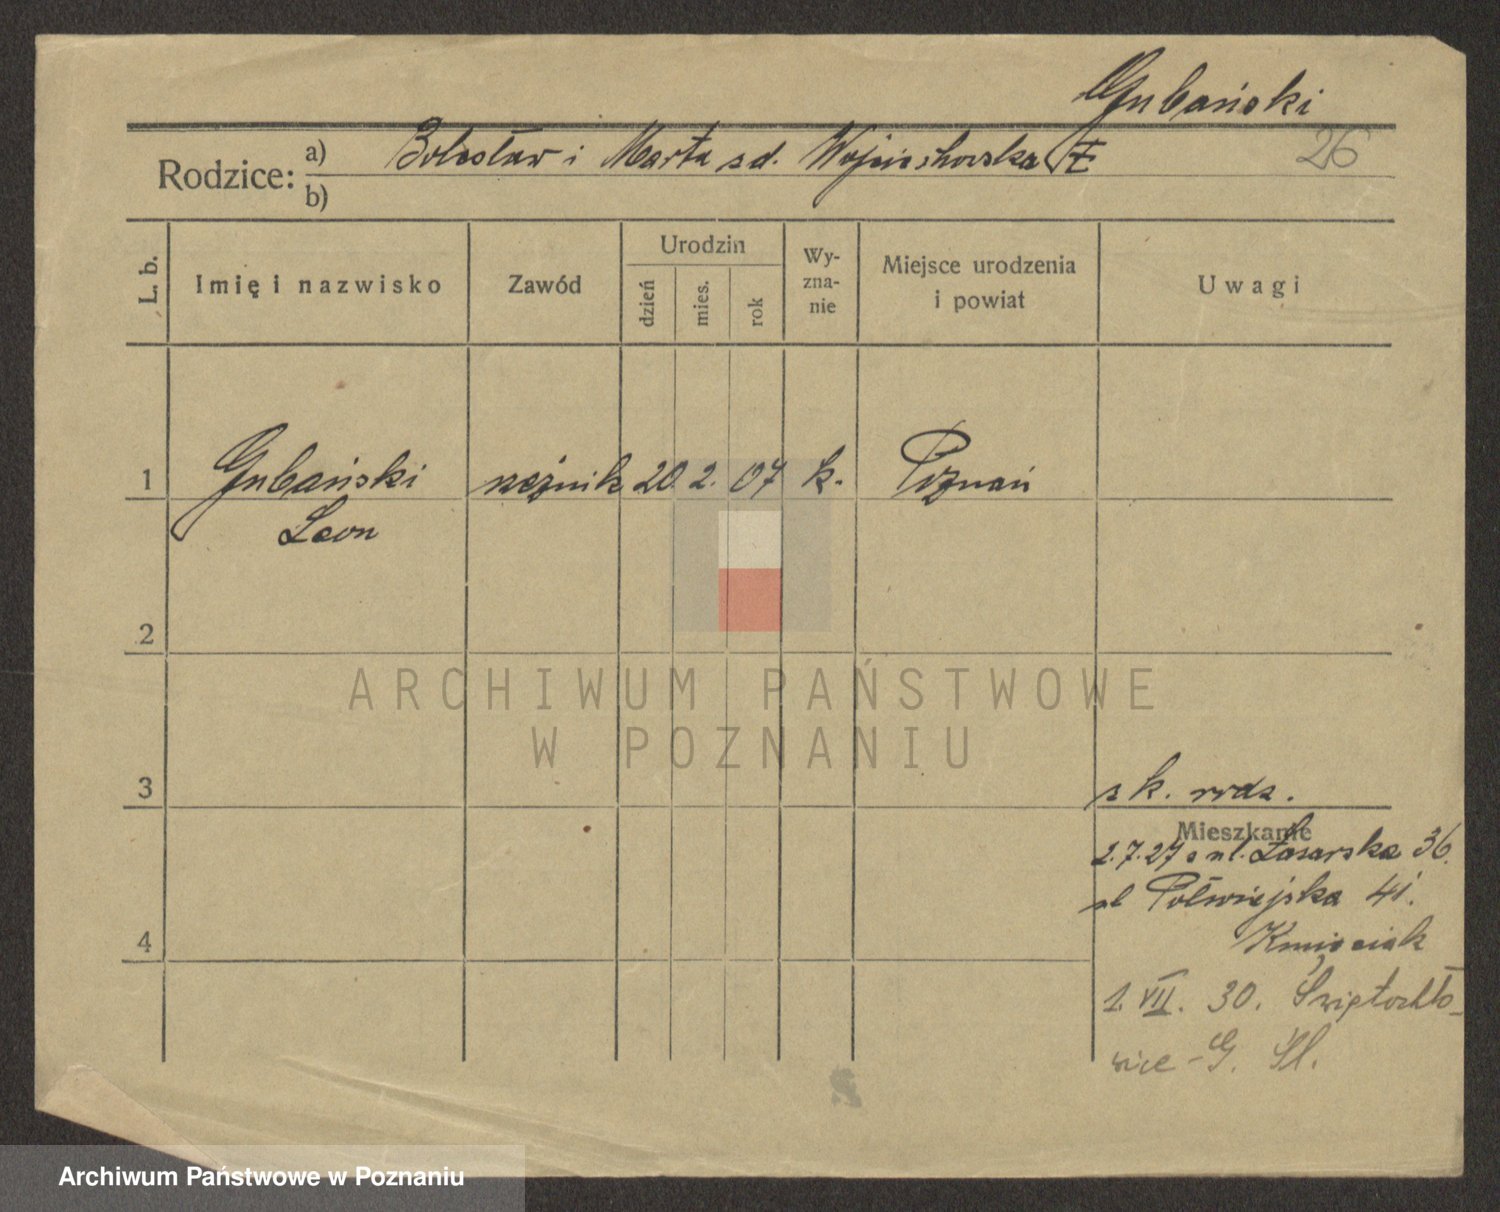 Gubański
26
Rodzice: a) Bolesław i Marta z d. Wojciechowska
b)
L. b. Imię i nazwisko Zawód Urodzin dzień mies. rok Wy-zna-nie Miejsce urodzenia i powiat Uwagi
1 Gubański rzeźnik 20 2. 07 k. Poznań
Leon
2
ARCHIWUM PAŃSTWOWE
W POZNANIU
3
z k. rodz.
Mieszkanie
2.7.27 z ul. Łazarska 36.
ul Półwiejska 41.
4
Kmieciak
1. VII. 30. Świętochło-
wice - G. Śl.
S
Archiwum Państwowe w Poznaniu